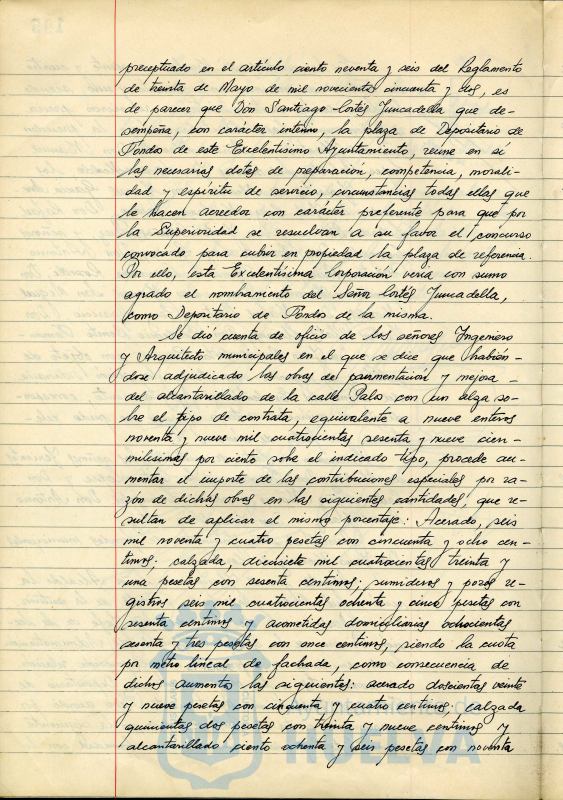 preceptuado en el artículo ciento noventa y seis del Reglamento
de treinta de Mayo de mil novecientos cincuenta y dos, es
de parecer que Don Santiago Cortés Juncadella que de-
sempeña, con carácter interino, la plaza de Depositario de
Fondos de este Excelentísimo Ayuntamiento, reúne en sí
las necesarias dotes de preparación, competencia, morali-
dad y espíritu de servicio, circunstancias todas ellas que
le hacen acreedor con carácter preferente para que por
la Superioridad se resuelvan a su favor el concurso
convocado para cubrir en propiedad la plaza de referencia.
Por ello, esta Excelentísima Corporación vería con sumo
agrado el nombramiento del Señor Cortés Juncadella,
como Depositario de Fondos de la misma.
Se dió cuenta de oficio de los señores Ingeniero
y Arquitecto municipales en el que se dice que habién-
dose adjudicado las obras de pavimentación y mejora
del alcantarillado de la calle Palos con un alza so-
bre el tipo de contrata, equivalente a nueve enteros
noventa y nueve mil cuatrocientas sesenta y nueve cien-
milésimas por ciento sobre el indicado tipo, procede au-
mentar el importe de las contribuciones especiales por ra-
zón de dichas obras en las siguientes cantidades, que re-
sultan de aplicar el mismo porcentaje: Acerado, seis
mil noventa y cuatro pesetas con cincuenta y ocho cén-
timos; calzada, diecisiete mil cuatrocientas treinta y
una pesetas con sesenta céntimos; sumideros y pozos re-
gistros seis mil cuatrocientas ochenta y cinco pesetas con
sesenta céntimos y acometidas domiciliarias ochocientas
sesenta y tres pesetas con once céntimos, siendo la cuota
por metro lineal de fachada, como consecuencia de
dichos aumentos las siguientes: acerado doscientas veinte
y nueve pesetas con cincuenta y cuatro céntimos, calzada
quinientas dos pesetas con treinta y nueve céntimos y
alcantarillado ciento ochenta y seis pesetas con noventa
HUELVA